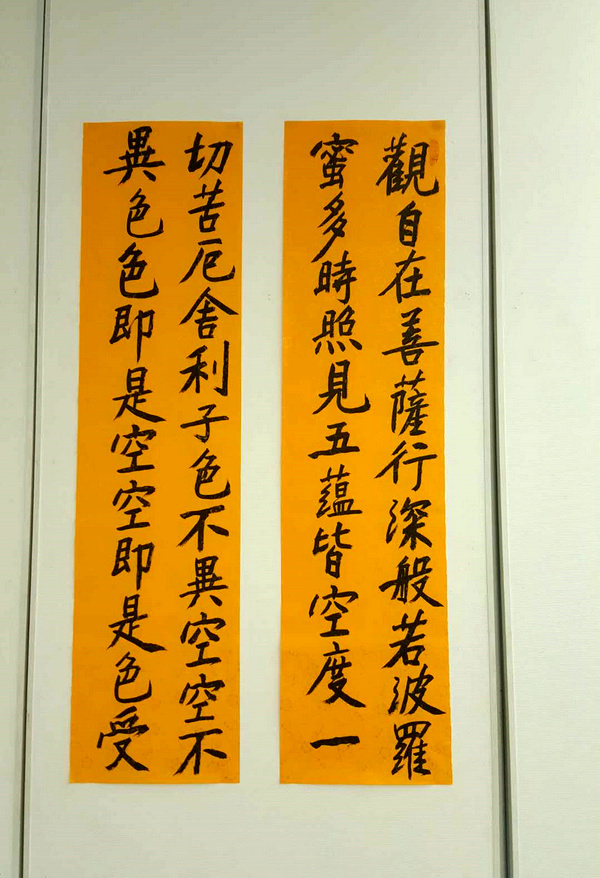 觀自在菩薩行深般若波羅
蜜多時照見五蘊皆空度一
切苦厄舍利子色不異空空不
異色色即是空空即是色受